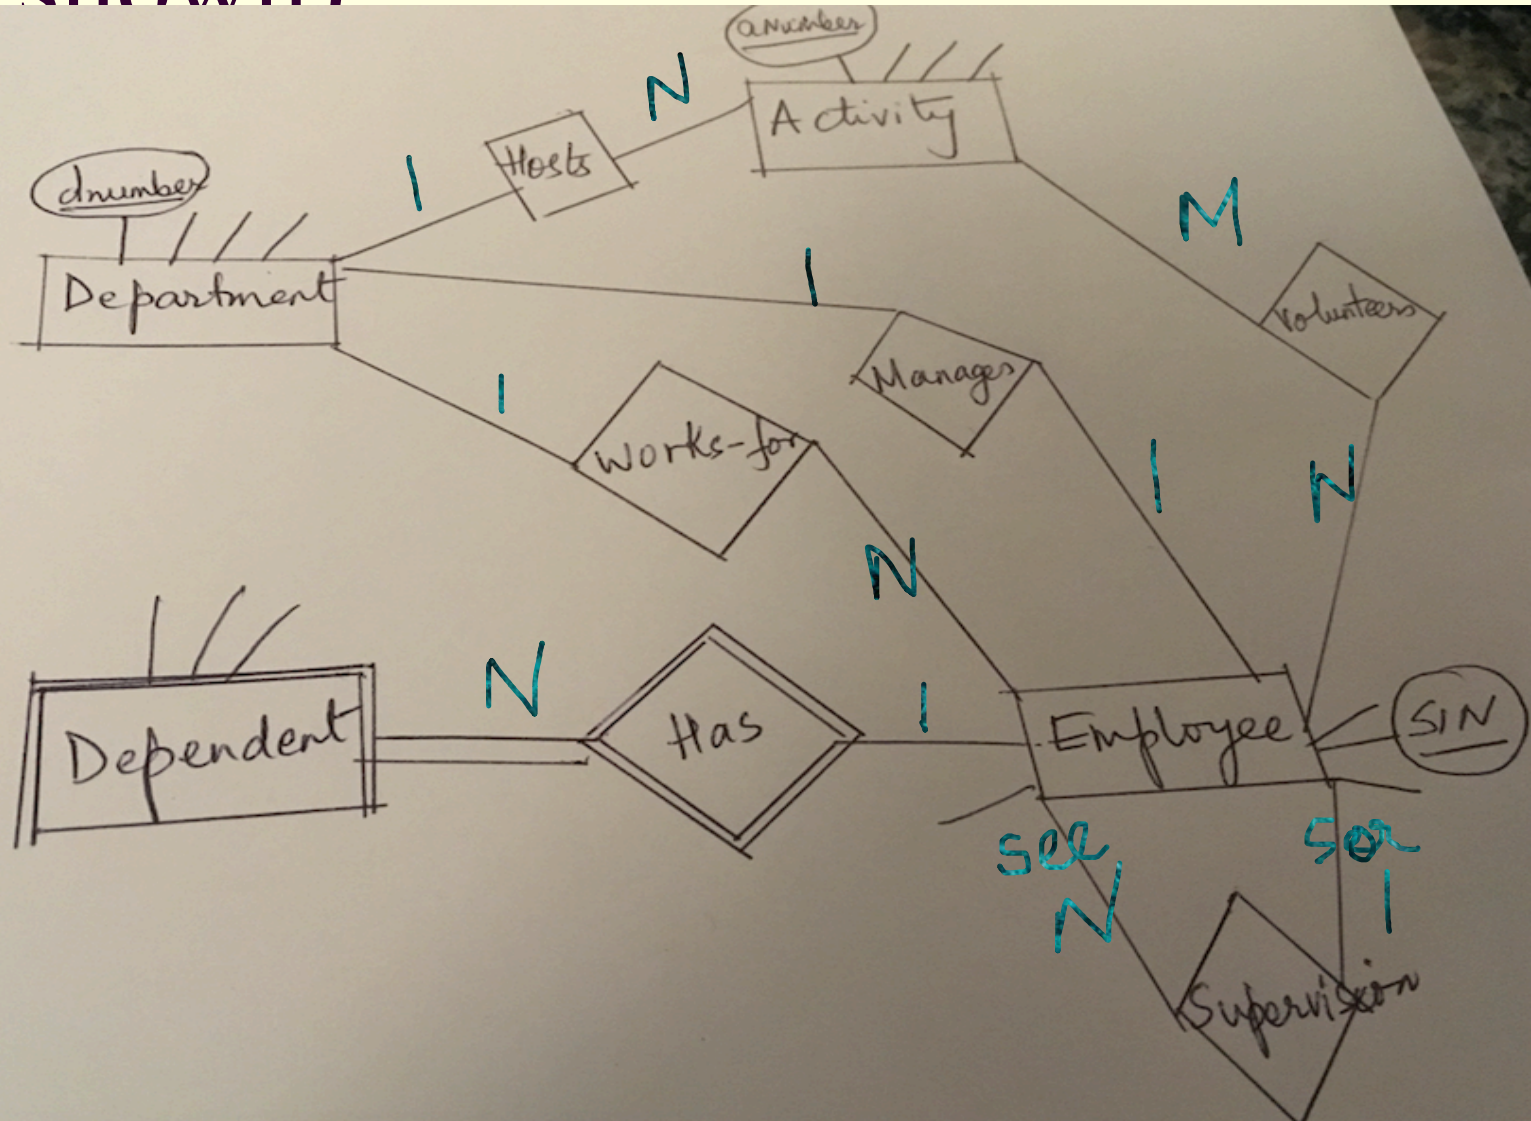 anumber
N
Activity
Hosts
1
dnumber
M
Department
1
volunteers
Manages
1
Works-for
1
N
N
N
Has
1
SIN
Dependent
Employee
see
sor
N
1
Supervision